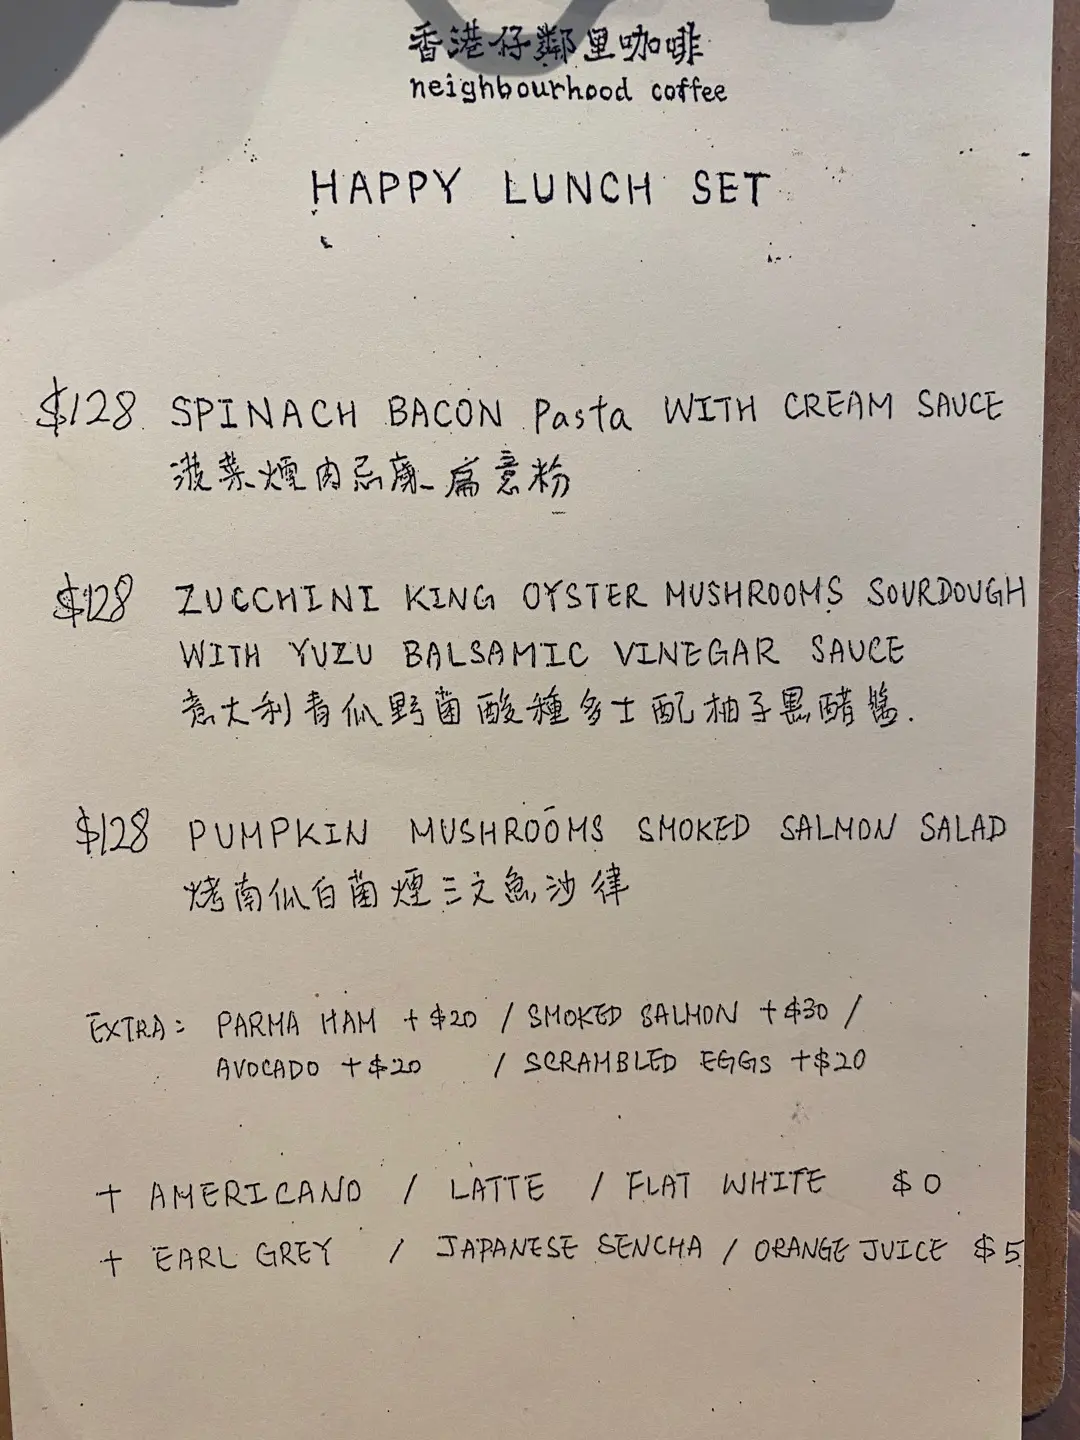 香港仔鄰里咖啡
neighbourhood coffee
HAPPY LUNCH SET
$128 SPINACH BACON Pasta WITH CREAM SAUCE
菠菜煙肉忌廉扁意粉
$128 ZUCCHINI KING OYSTER MUSHROOMS SOURDOUGH
WITH YUZU BALSAMIC VINEGAR SAUCE
意大利青瓜野菌酸種多士配柚子黑醋醬.
$128 PUMPKIN MUSHROOMS SMOKED SALMON SALAD
烤南瓜白菌煙三文魚沙律
EXTRA: PARMA HAM +$20 / SMOKED SALMON +$30 /
AVOCADO +$20 / SCRAMBLED EGGS +$20
+ AMERICANO / LATTE / FLAT WHITE $0
+ EARL GREY / JAPANESE SENCHA / ORANGE JUICE $5